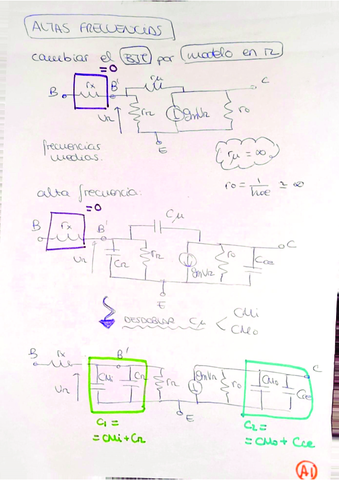 ALTAS FRECUENCIAS
cambiar el BJT por modelo en π
=0
rx rμ
B B' C
Vπ rπ gmVπ ro
E
frecuencias
medias.
rμ = ∞
ro = 1/hoe ≃ ∞
alta frecuencia:
=0
Cμ
rx
B B' C
Vπ Cπ rπ gmVπ ro Cce
E
DESDOBLAR Cμ < CMi
CMo
B rx B' C
Vπ CMi Cπ rπ gmVπ ro CMo Cce
E
C1 =
= CMi + Cπ
C2 =
= CMo + Cce
A1